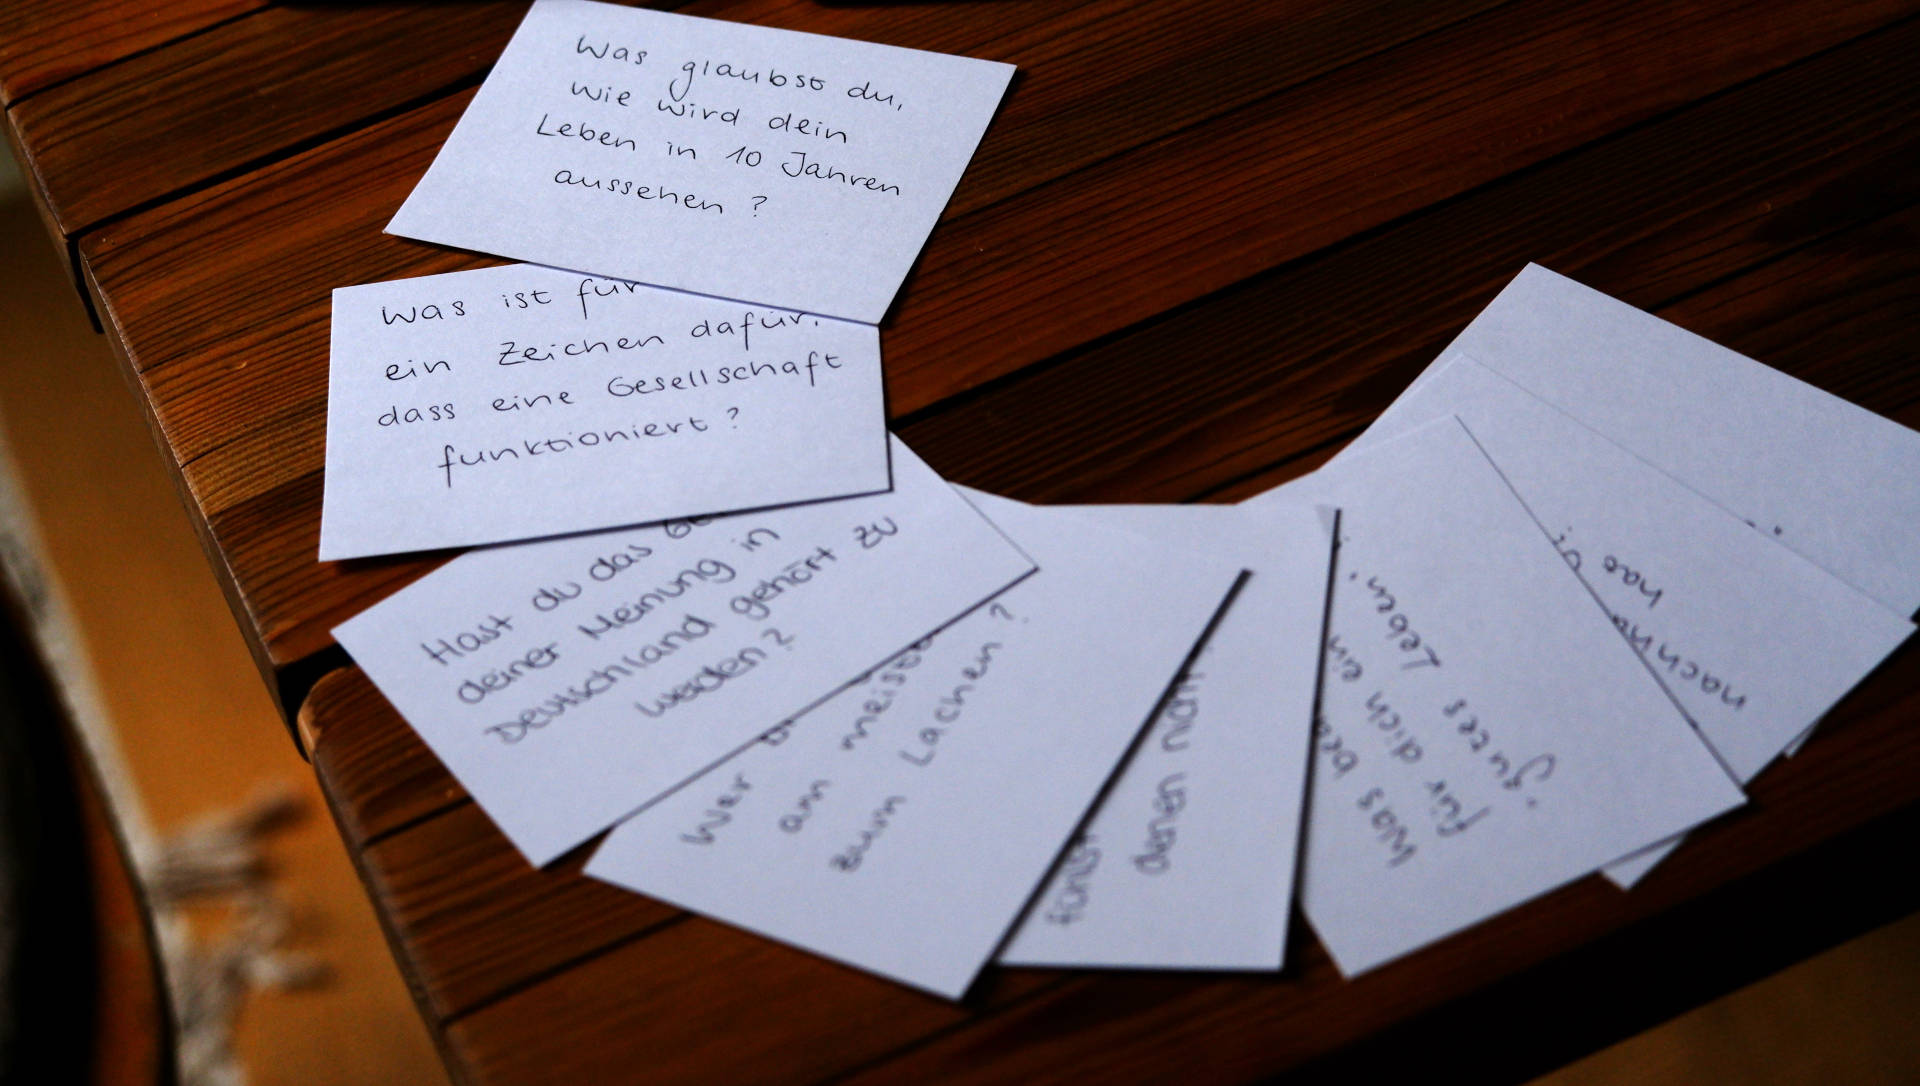 Was glaubst du,
wie wird dein
Leben in 10 Jahren
aussehen?
Was ist für
ein Zeichen dafür,
dass eine Gesellschaft
funktioniert?
Hast du das
deiner Meinung in
Deutschland gehört zu
werden?
Wer
am meisten
zum Lachen?
denen nicht
Was
für dich ein
gutes Leben?